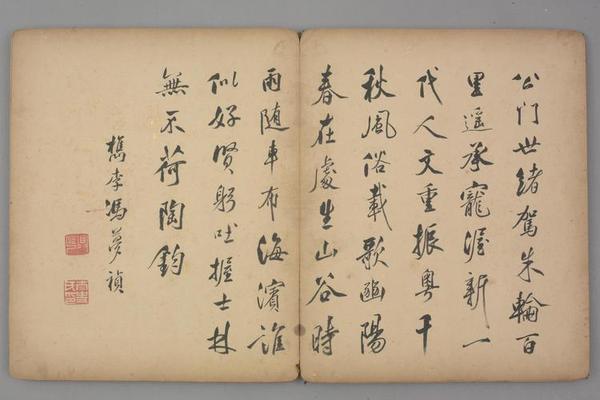 公門世緒駕朱輪百
里遥承寵渥新一
代人文重振粤千
秋風俗載歌豳陽
春在處生山谷時
雨随車布海濱誰
似好賢躬吐握士林
無不荷陶鈞
檇李馮夢禎